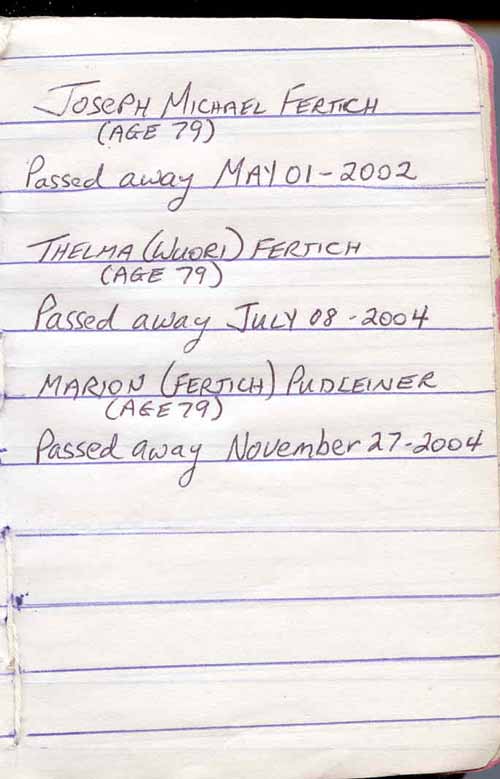 JOSEPH MICHAEL FERTICH
(AGE 79)
Passed away MAY 01-2002
THELMA (WUORI) FERTICH
(AGE 79)
Passed away JULY 08-2004
MARION (FERTICH) PUDLEINER
(AGE 79)
Passed away November 27-2004